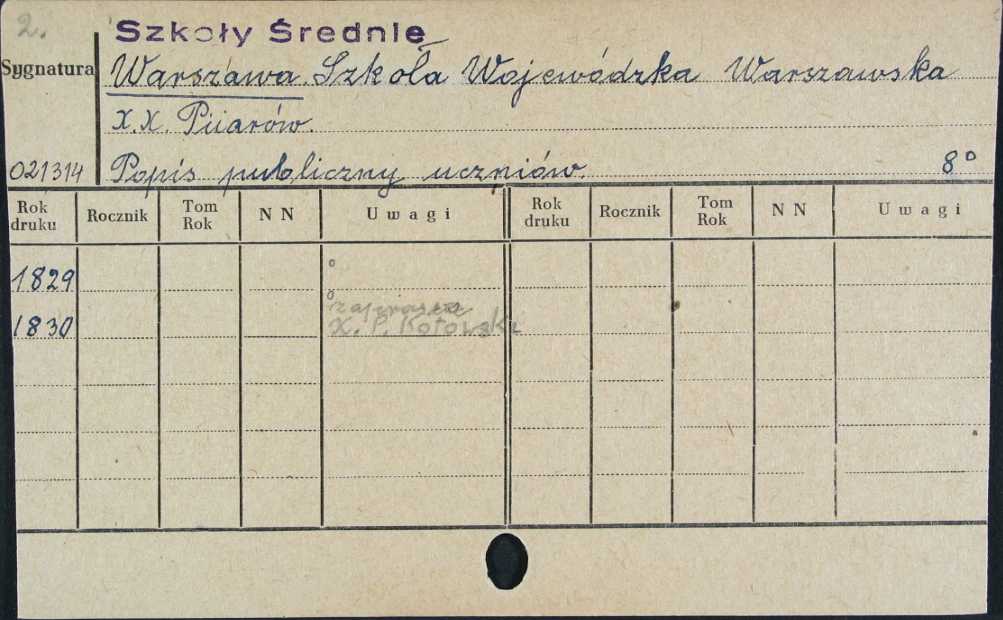 2.
Szkoły Średnie
Sygnatura
Warszawa. Szkoła Wojewódzka Warszawska
X.X. Pijarów.
021314 Popis publiczny uczniów. 8°
Rok druku Rocznik Tom Rok N N Uwagi Rok druku Rocznik Tom Rok N N Uwagi
1829 °
° zaprasza
1830 X. P. Kotowski